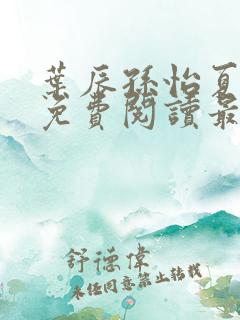 葉辰孫怡夏
免費閱讀最
舒德偉
未經同意禁止轉載